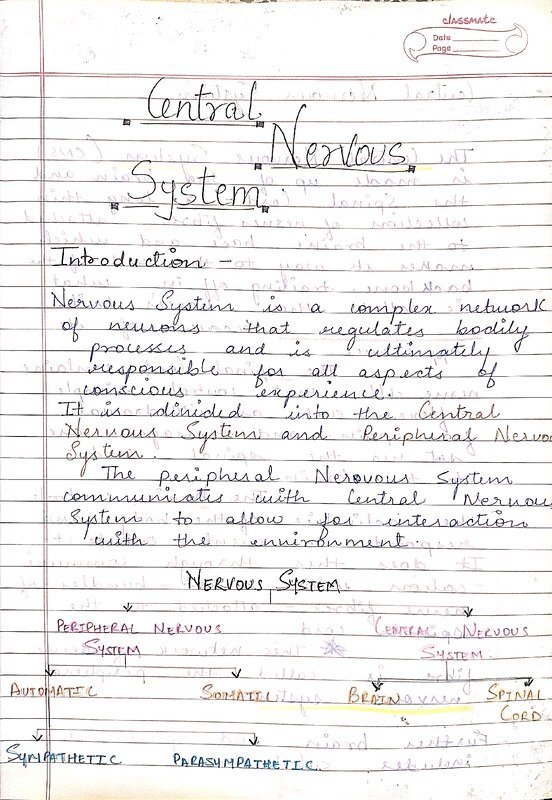 classmate
Date
Page
Central
Nervous
System
Introduction -
Nervous System is a complex network
of neurons that regulates bodily
processes and is ultimately
responsible for all aspects of
conscious experience.
It is divided into the Central
Nervous System and Peripheral Nervou
System.
The peripheral Nerovous System
communicates with Central Nervous
System to allow for interaction
with the environment.
NERVOUS SYSTEM
PERIPHERAL NERVOUS CENTRAL NERVOUS
SYSTEM SYSTEM
AUTOMATIC SOMATIC BRAIN SPINAL
CORD
SYMPATHETIC PARASYMPATHETIC